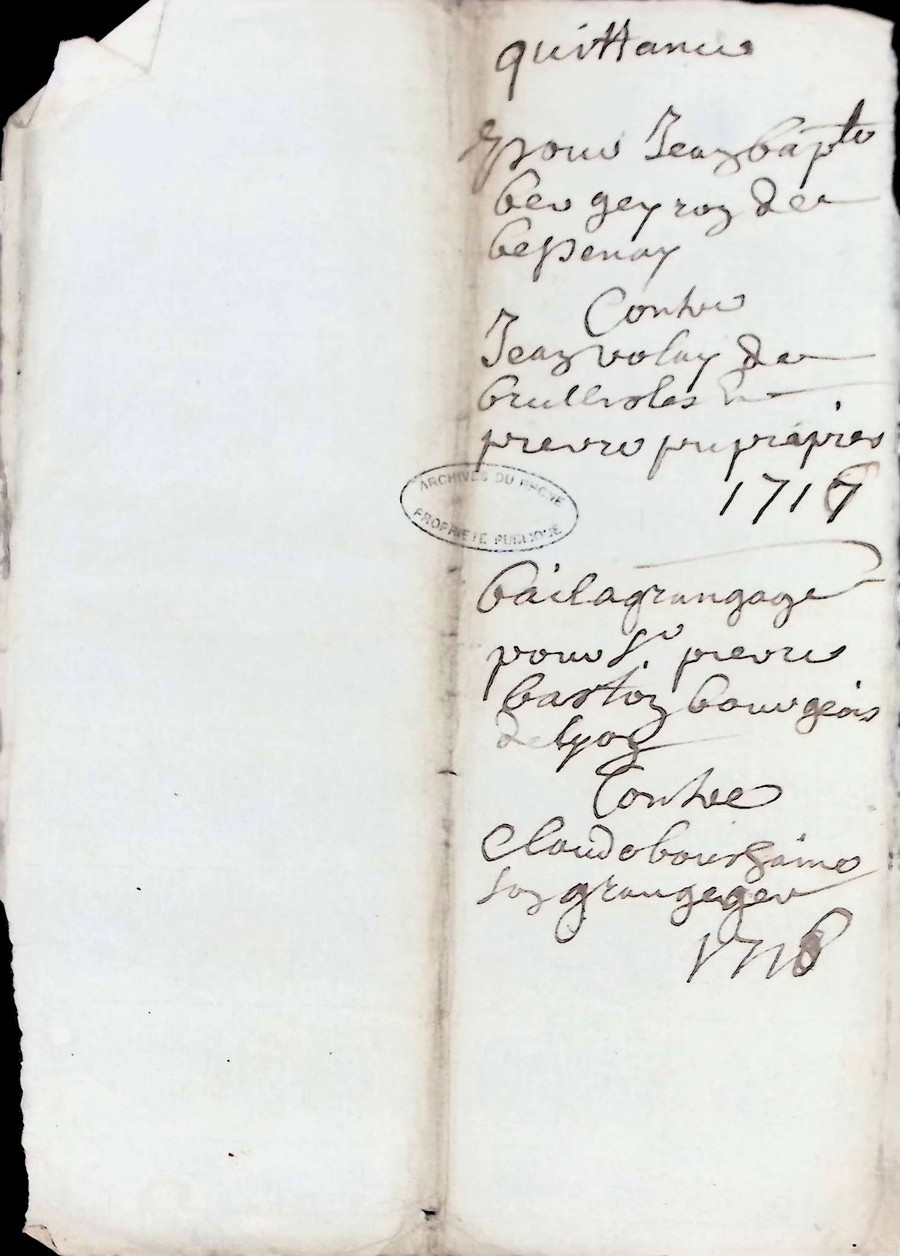 quittance
pour Jean bapte
bergeyron de
bessenay
Contre
Jean volay de
brullioles
1717
ARCHIVES DU RHÔNE
PROPRIÉTÉ PUBLIQUE
bail a grangage
pour Sr pierre
baston bourgeois
de lyon
Contre
Claude
son granger
1718